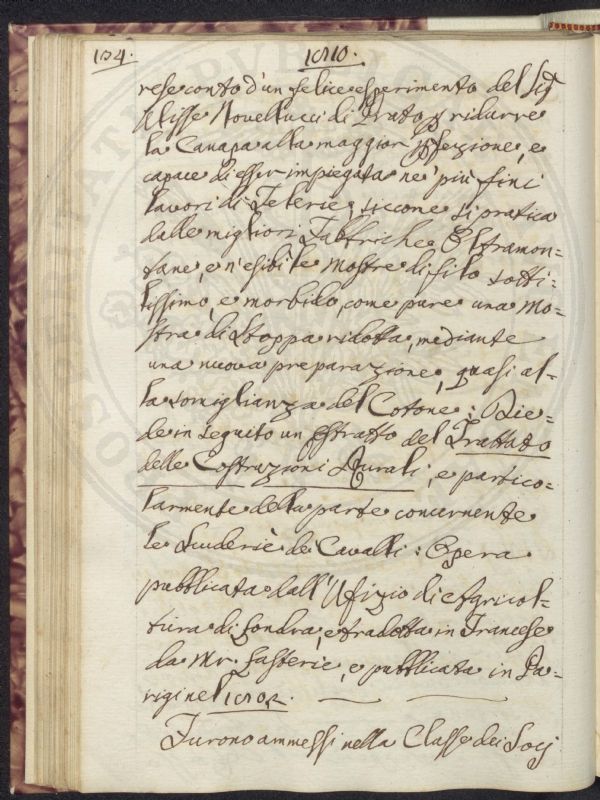 134.
1810.
rese conto d'un felice esperimento del Sig.
Ulisse Novellucci di Prato p ridurre
la Canapa alla maggior pfezione, e
capace di esser impiegata ne' più fini
lavori di Telerie, siccome si pratica
dalle migliori Fabbriche Oltramon=
tane, e n'esibì le Mostre di filo sotti=
lissimo, e morbido, come pure una Mo=
stra di Stoppa ridotta, mediante
una nuova preparazione, quasi al=
la somiglianza del Cotone: Die=
de in seguito un Estratto del Trattato
delle Costruzioni Rurali, e partico=
larmente della parte concernente
le Scuderie de' Cavalli: Opera
pubblicata dall'Ufizio di Agricol=
tura di Londra, e tradotta in Francese
da Mr. Lasterie, e pubblicata in Pa=
rigi nel 1802.
Furono ammessi nella Classe dei Socj